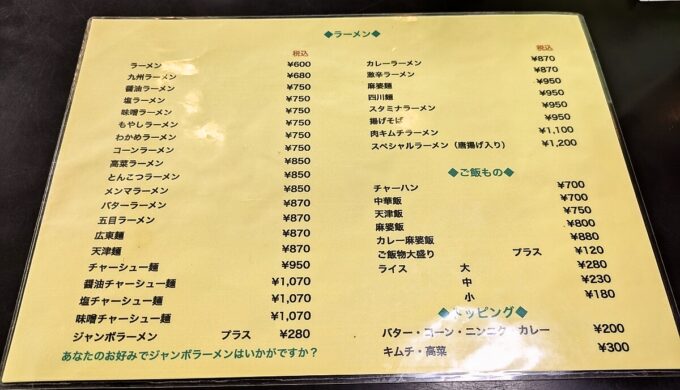 ◆ラーメン◆
税込
ラーメン ¥600
九州ラーメン ¥680
醤油ラーメン ¥750
塩ラーメン ¥750
味噌ラーメン ¥750
もやしラーメン ¥750
わかめラーメン ¥750
コーンラーメン ¥750
高菜ラーメン ¥850
とんこつラーメン ¥850
メンマラーメン ¥850
バターラーメン ¥870
五目ラーメン ¥870
広東麺 ¥870
天津麺 ¥870
チャーシュー麺 ¥950
醤油チャーシュー麺 ¥1,070
塩チャーシュー麺 ¥1,070
味噌チャーシュー麺 ¥1,070
ジャンボラーメン プラス ¥280
あなたのお好みでジャンボラーメンはいかがですか？
税込
カレーラーメン ¥870
激辛ラーメン ¥870
麻婆麺 ¥950
四川麺 ¥950
スタミナラーメン ¥950
揚げそば ¥950
肉キムチラーメン ¥1,100
スペシャルラーメン（唐揚げ入り） ¥1,200
◆ご飯もの◆
チャーハン ¥700
中華飯 ¥700
天津飯 ¥750
麻婆飯 ¥800
カレー麻婆飯 ¥880
ご飯物大盛り プラス ¥120
ライス 大 ¥280
中 ¥230
小 ¥180
◆トッピング◆
バター・コーン・ニンニク カレー ¥200
キムチ・高菜 ¥300